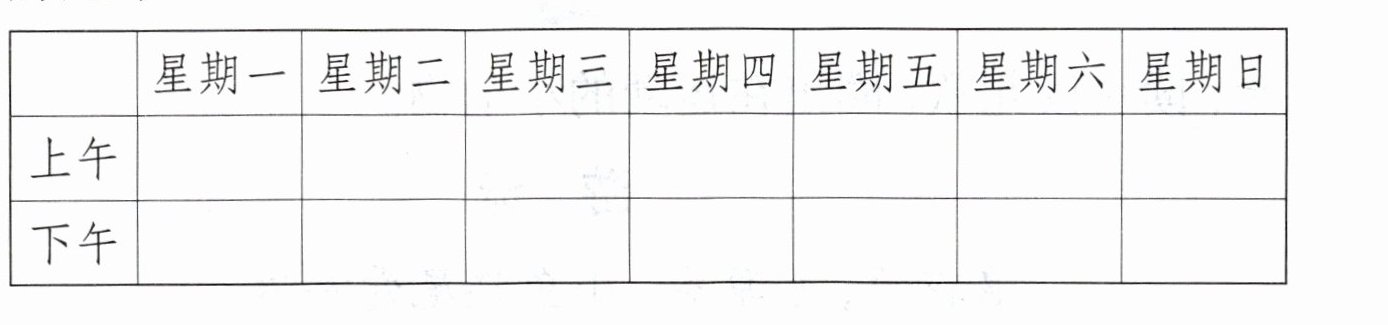 星期一 星期二 星期三 星期四 星期五 星期六 星期日
上午
下午